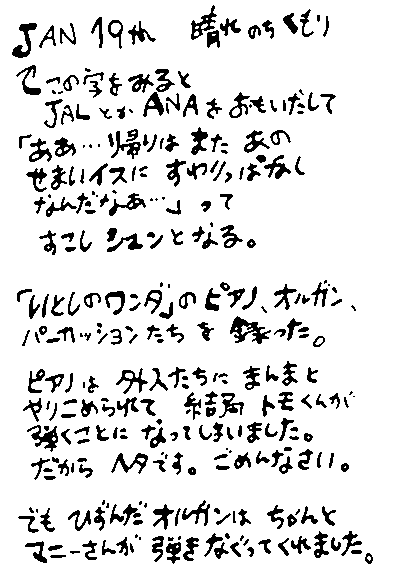 JAN 19th 晴れのちくもり
この字をみると
JALとかANAをおもいだして
「ああ…帰りは また あの
せまいイスに すわりっぱなし
なんだなあ…」って
すこし シュンとなる。
「いとしのワンダ」のピアノ、オルガン、
パーカッションたちを録った。
ピアノは 外人たちに まんまと
やりこめられて 結局 トモくんが
弾くことに なってしまいました。
だから ヘタです。ごめんなさい。
でも ひずんだ オルガンは ちゃんと
マニーさんが 弾きなぐってくれました。